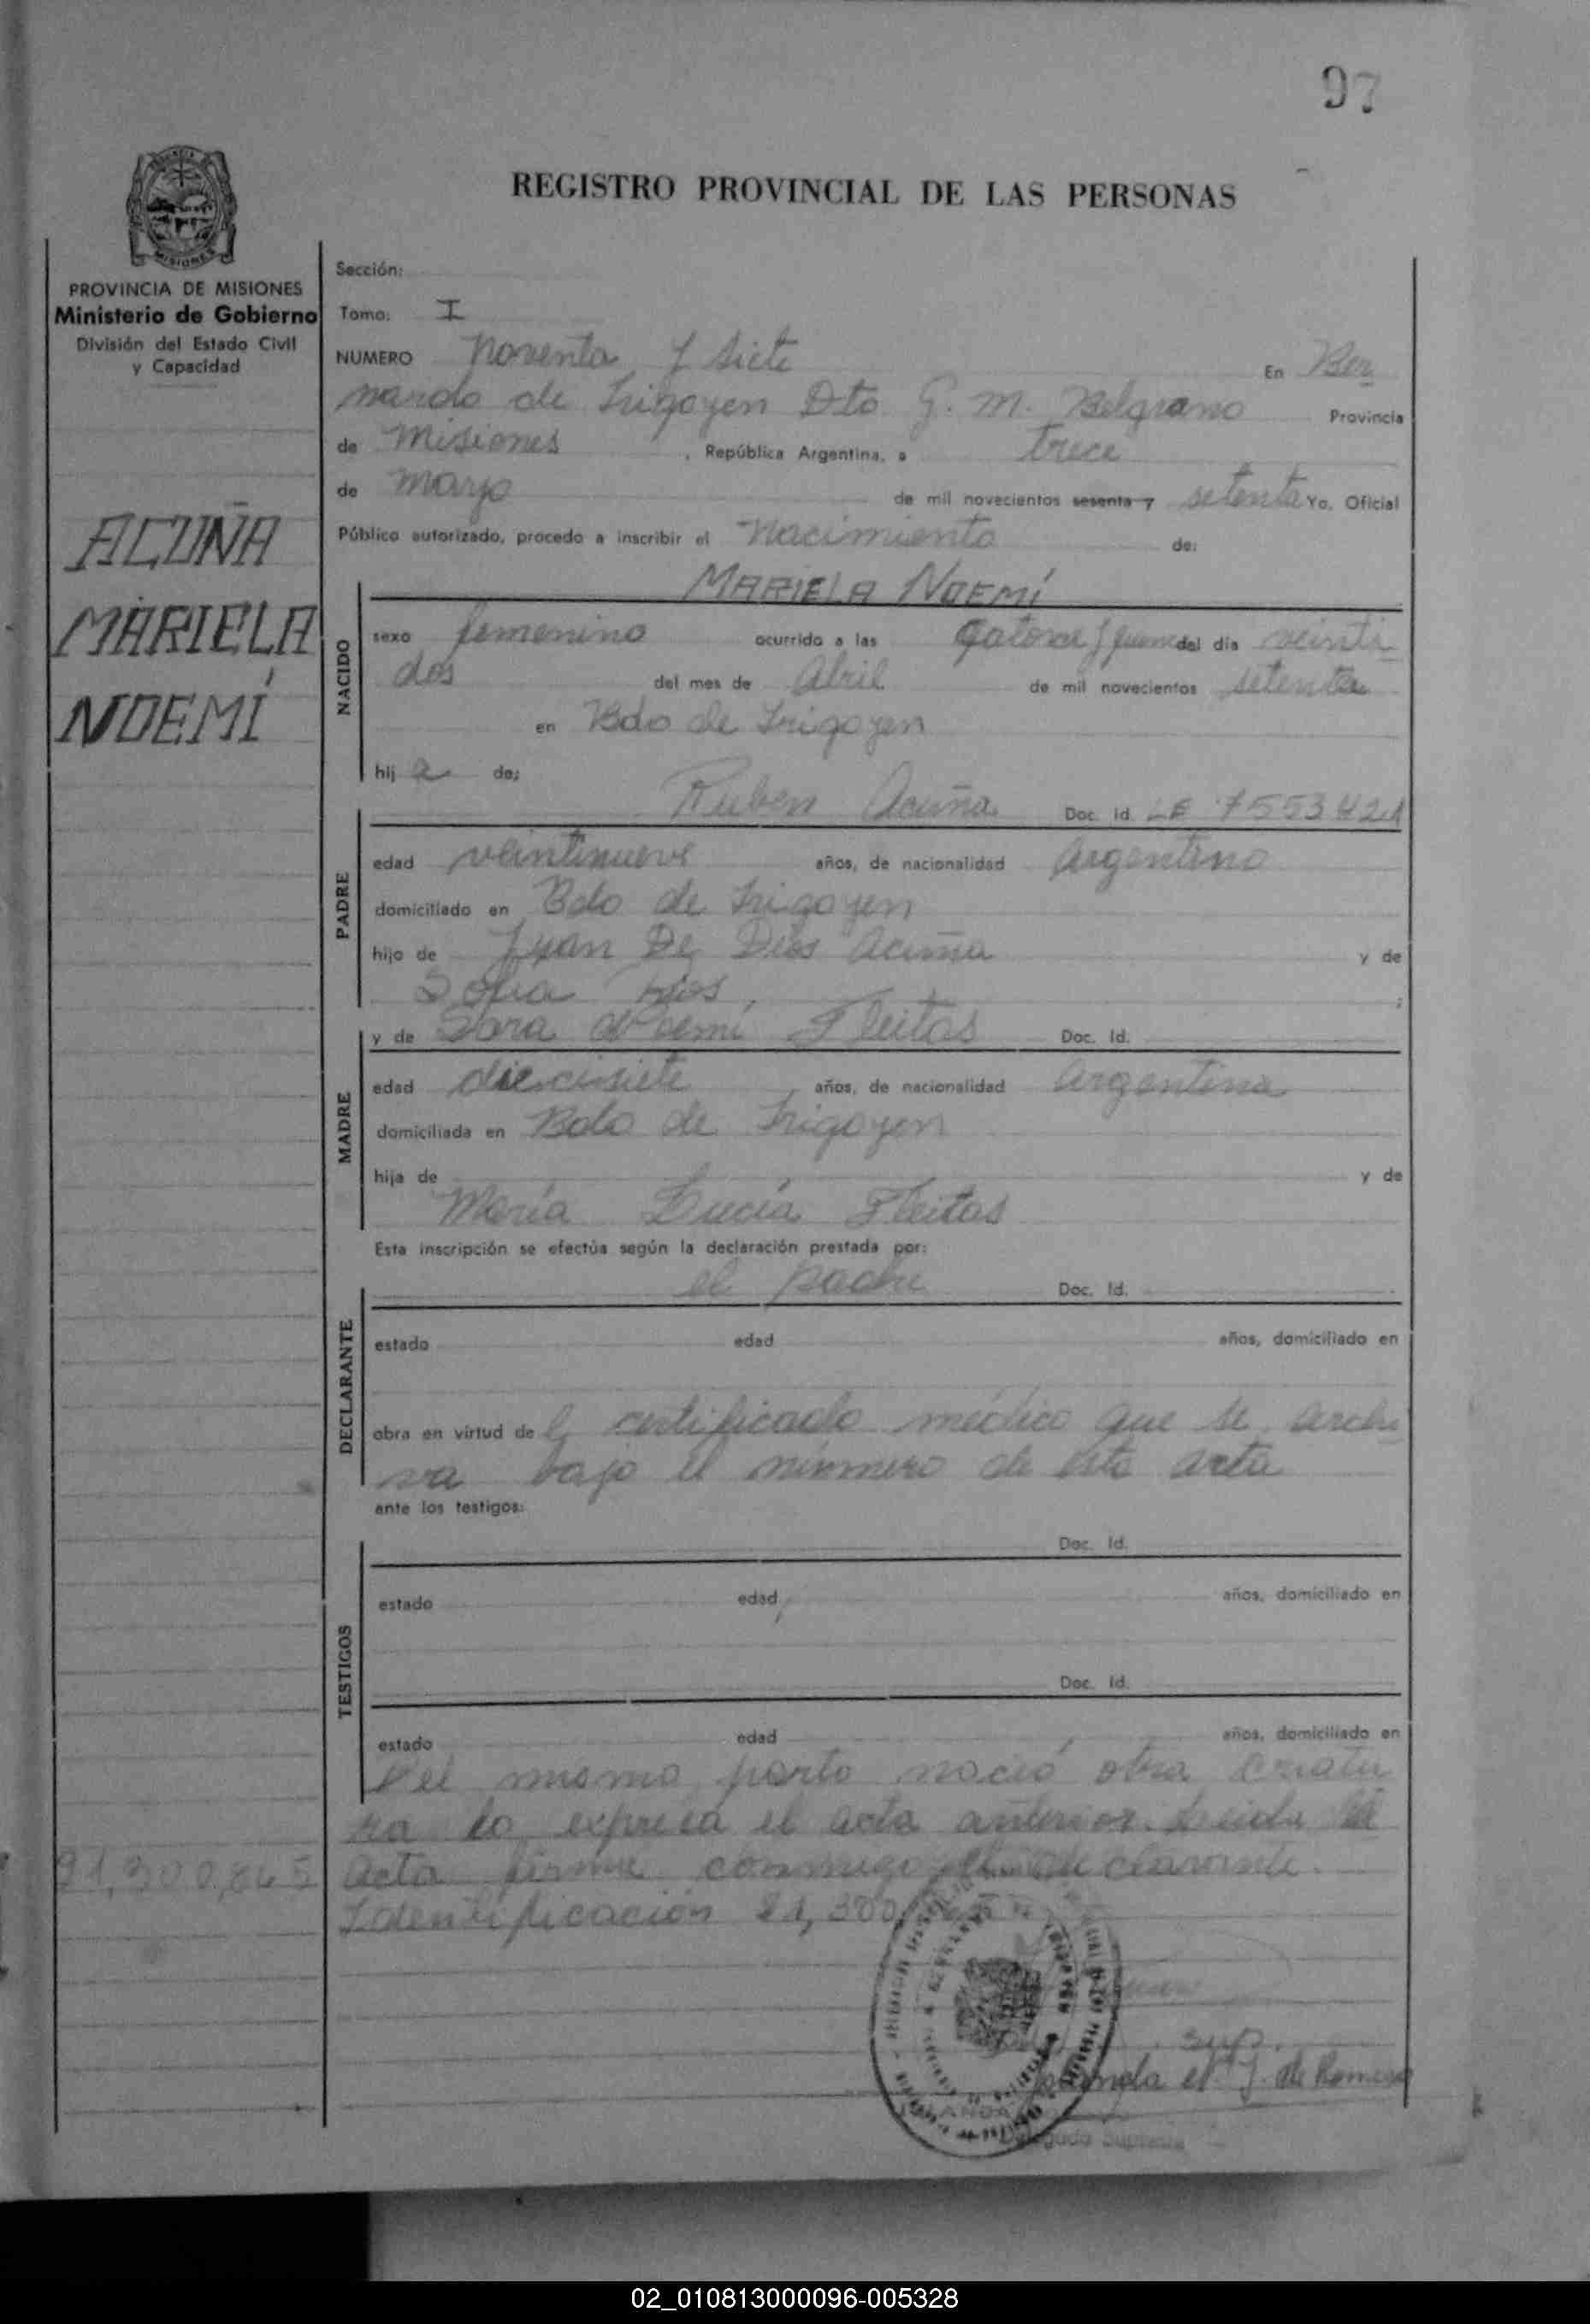 97
REGISTRO PROVINCIAL DE LAS PERSONAS
PROVINCIA DE MISIONES
Ministerio de Gobierno
División del Estado Civil
y Capacidad
ACUÑA
MARIELA
NOEMÍ
Sección:
Tomo: I
NUMERO Noventa y siete En Ber
nardo de Irigoyen Dto G. M. Belgrano Provincia
de Misiones, República Argentina, a trece
de mayo de mil novecientos sesenta y setenta Yo, Oficial
Público autorizado, procedo a inscribir el Nacimiento de:
MARIELA NOEMÍ
NACIDO
sexo femenino ocurrido a las Catorce y quince del día veinti
dos del mes de Abril de mil novecientos setenta
en Bdo de Irigoyen
hij a de:
Ruben Acuña Doc. Id. LE 7553421
PADRE
edad veintinueve años, de nacionalidad Argentino
domiciliado en Bdo de Irigoyen
hijo de Juan De Dios Acuña y de
Sofia Rios ;
y de Sara Noemí Fleitas Doc. Id.
MADRE
edad diecisiete años, de nacionalidad Argentina
domiciliada en Bdo de Irigoyen
hija de y de
María Lucía Fleitas
Esta inscripción se efectúa según la declaración prestada por:
el padre Doc. Id.
DECLARANTE
estado edad años, domiciliado en
obra en virtud de l certificado médico que se archi
va bajo el número de esta acta
ante los testigos:
Doc. Id.
TESTIGOS
estado edad años, domiciliado en
Doc. Id.
estado edad años, domiciliado en
Del mismo parto nació otra criatu
ra lo expresa el acta anterior. Leida el
acta firma conmigo el declarante.
Identificación 21,300
21,300,865
sup.
J. de Romero
Delegado Suplente
02_010813000096-005328